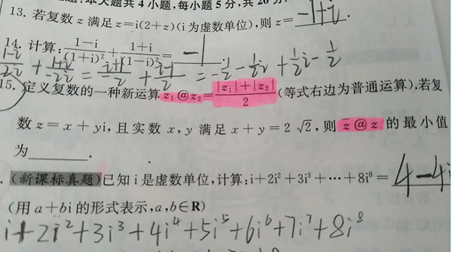 本大题共4小题,每小题5分,共20分
13. 若复数z满足z=i(2+z)(i为虚数单位),则z=-1+i.
14. 计算:\frac{1-i}{(1+i)^2}+\frac{1+i}{(1-i)^2}=-1
\frac{1-i}{2i}+\frac{1+i}{-2i}=\frac{i+1}{-2}+\frac{i-1}{2}=-\frac{1}{2}-\frac{1}{2}i+\frac{1}{2}i-\frac{1}{2}
15. 定义复数的一种新运算z_1@z_2=\frac{|z_1|+|z_2|}{2}(等式右边为普通运算).若复
数z=x+yi,且实数x,y满足x+y=2\sqrt{2},则\overline{z}@z的最小值
为________.
(新课标真题)已知i是虚数单位,计算:i+2i²+3i³+⋯+8i⁸=4-4i
(用a+bi的形式表示,a,b∈R)
i+2i²+3i³+4i⁴+5i⁵+6i⁶+7i⁷+8i⁸